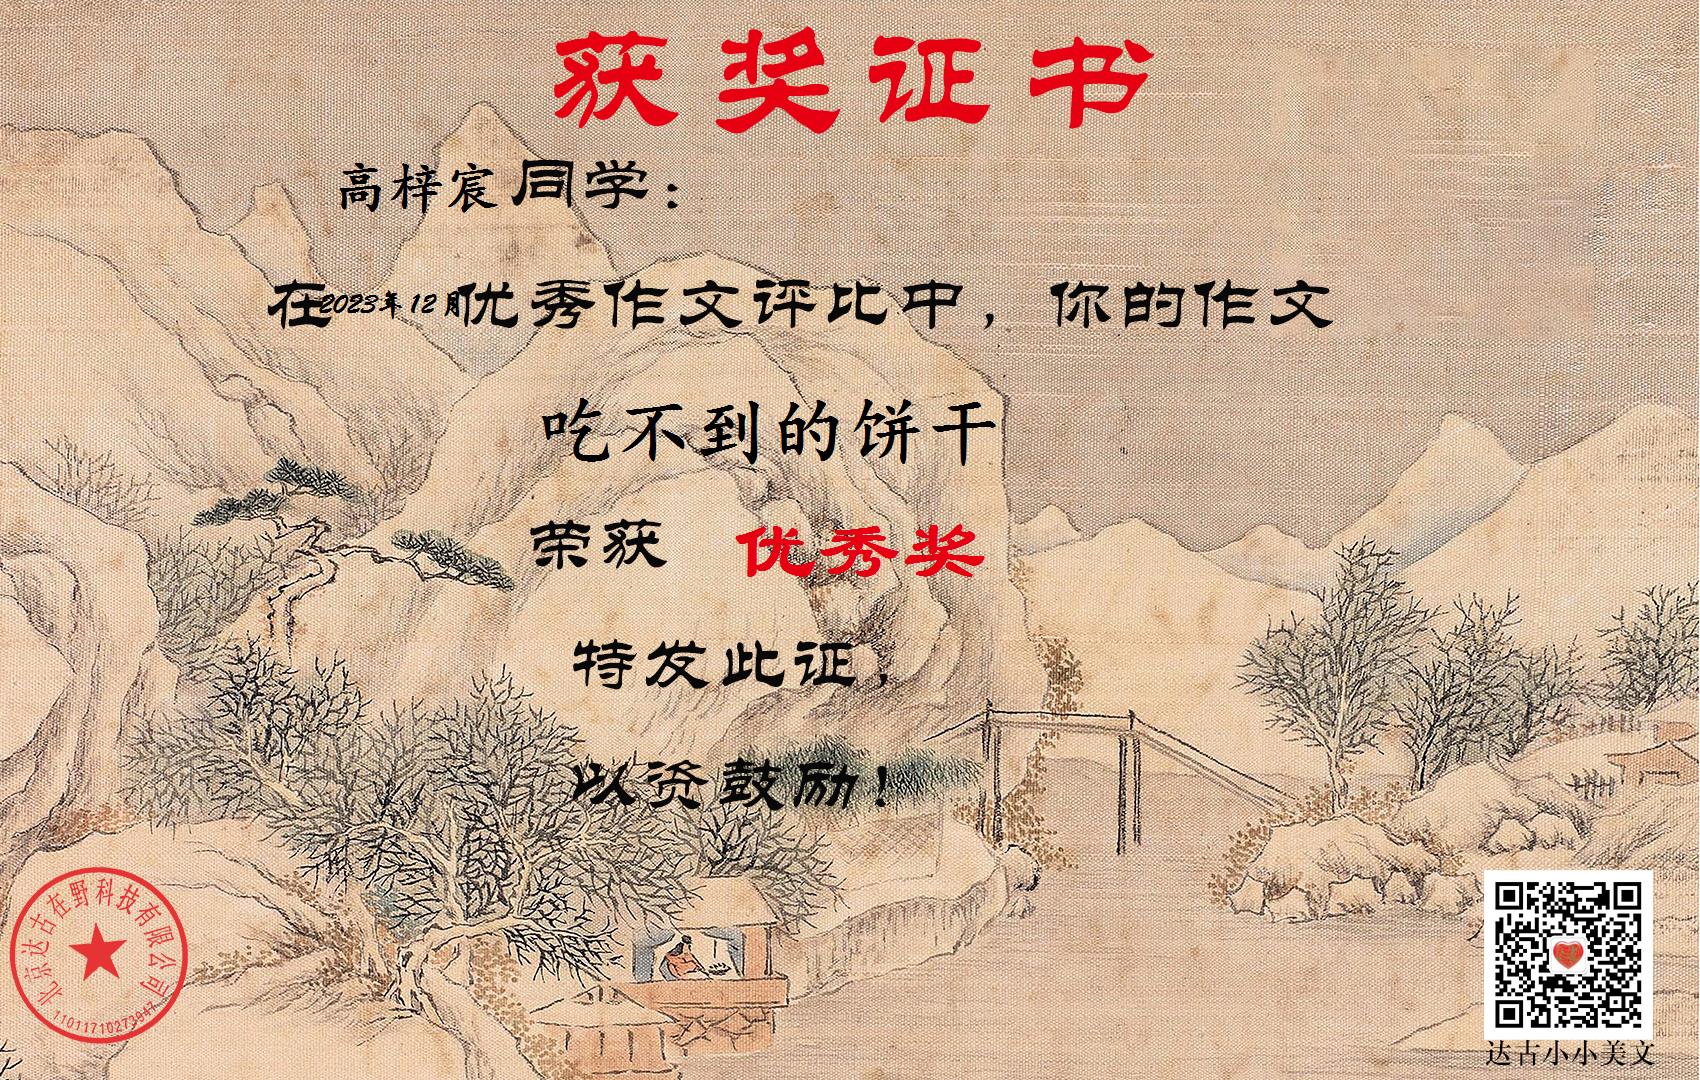 获奖证书
高梓宸同学：
在2023年12月优秀作文评比中，你的作文
吃不到的饼干
荣获 优秀奖
特发此证，
以资鼓励！
北京达古在野科技有限公司
11011710273947
达古小小美文